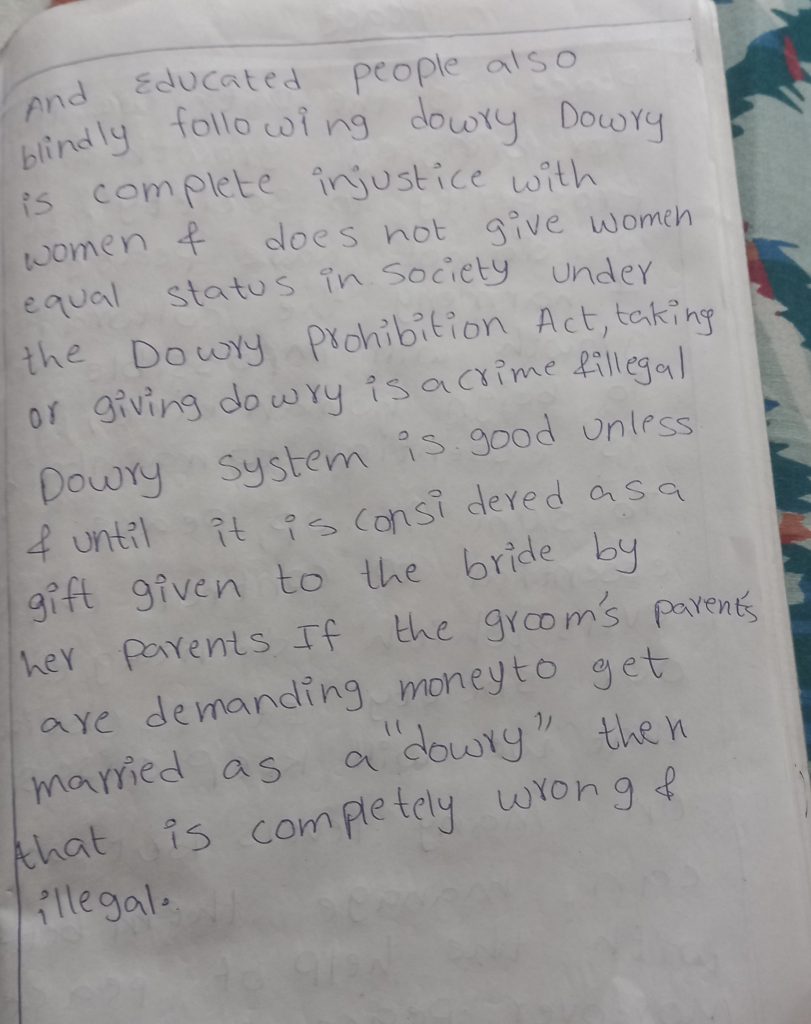 And Educated people also
blindly following dowry Dowry
is complete injustice with
women & does not give women
equal status in society under
the Dowry Prohibition Act, taking
or giving dowry is a crime &illegal
Dowry system is good unless
& until it is considered as a
gift given to the bride by
her parents If the groom's parent's
are demanding money to get
married as a "dowry" then
that is completely wrong &
illegal.